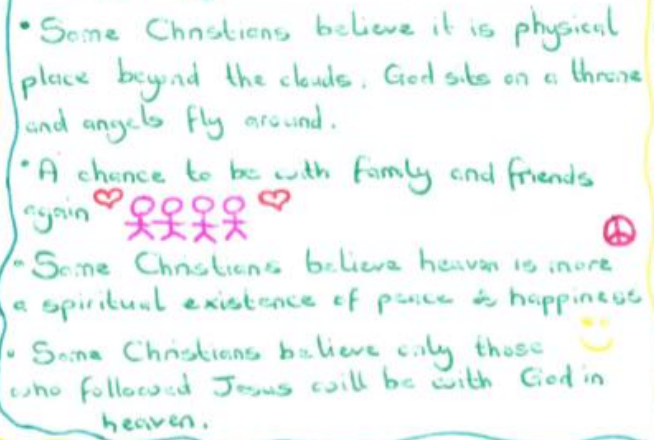 • Some Christians believe it is physical
place beyond the clouds. God sits on a throne
and angels fly around.
• A chance to be with family and friends
again
• Some Christians believe heaven is more
a spiritual existence of peace & happiness
• Some Christians believe only those
who followed Jesus will be with God in
heaven.